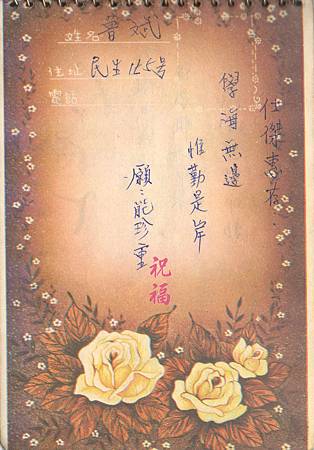 姓名 曾斌
住址 民生165号
電話
仕傑惠存:
學海無邊
惟勤是岸
願:能珍重
祝福